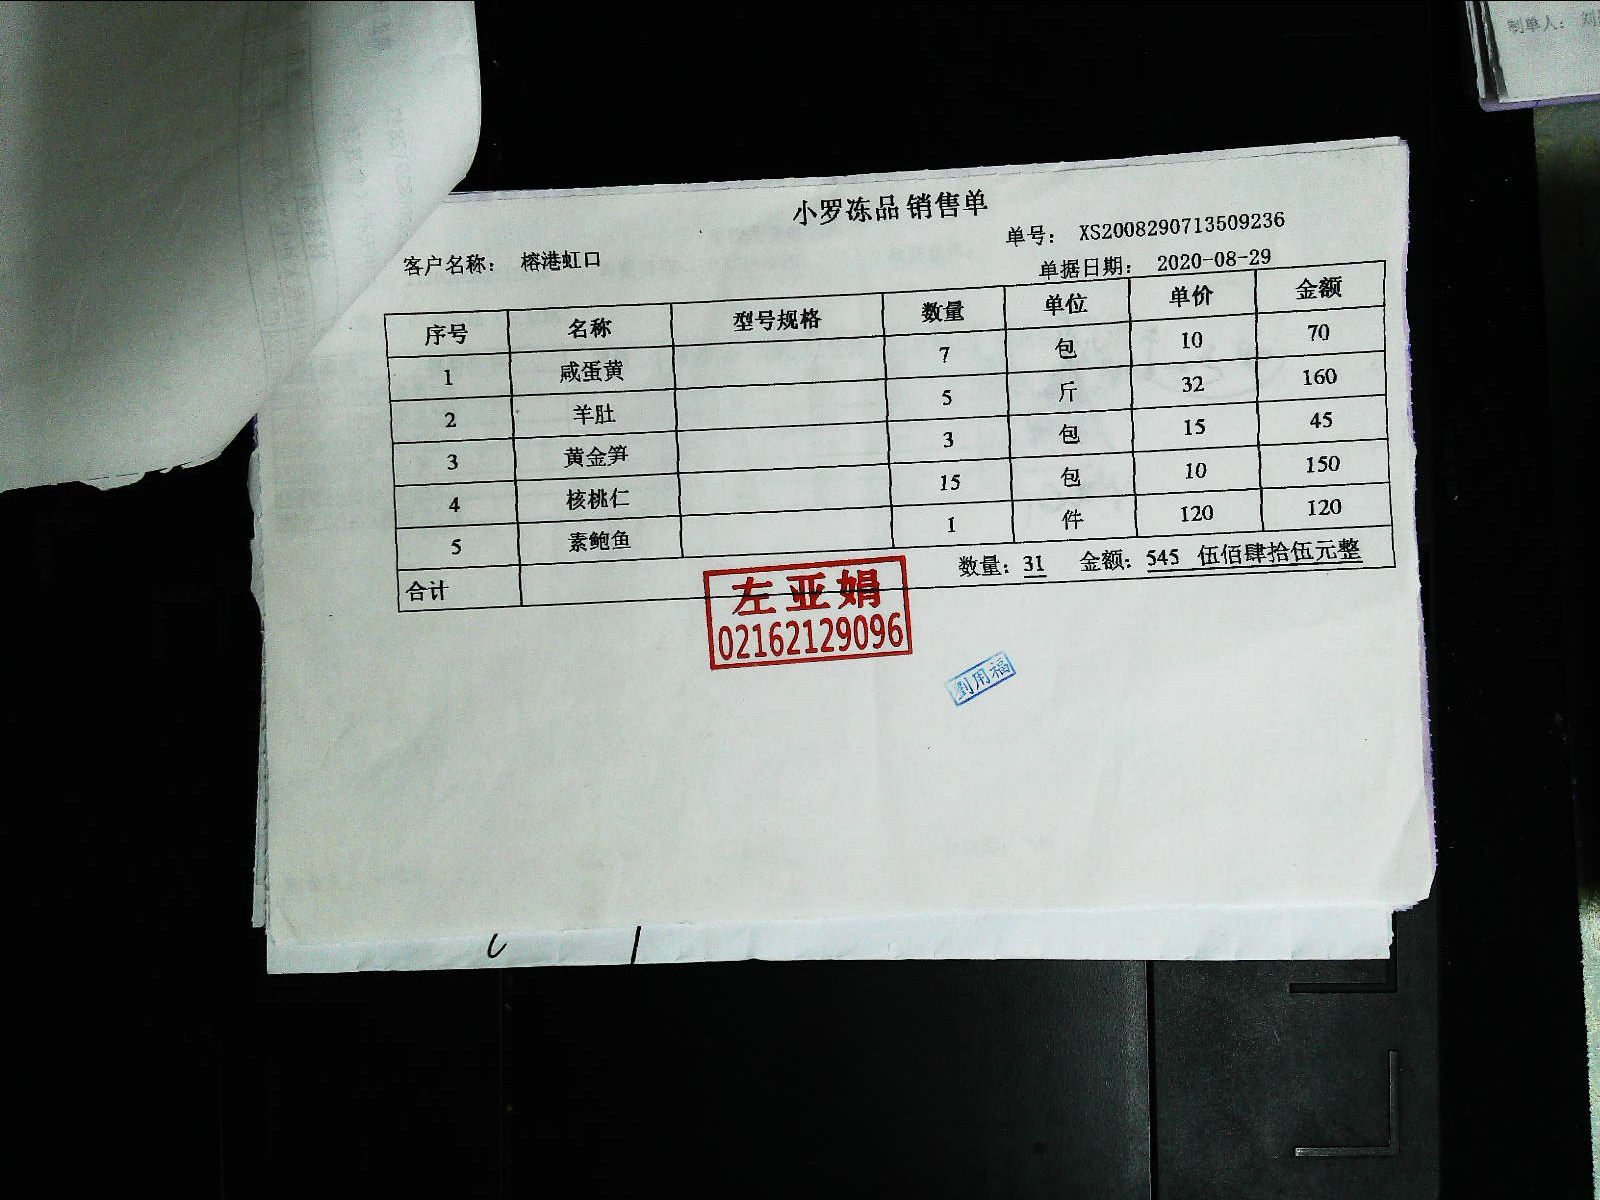 制单人：
小罗冻品 销售单
单号： XS2008290713509236
客户名称： 榕港虹口
单据日期： 2020-08-29
序号 名称 型号规格 数量 单位 单价 金额
1 咸蛋黄 7 包 10 70
2 羊肚 5 斤 32 160
3 黄金笋 3 包 15 45
4 核桃仁 15 包 10 150
5 素鲍鱼 1 件 120 120
合计 数量：31 金额：545 伍佰肆拾伍元整
左亚娟
02162129096
劉用福